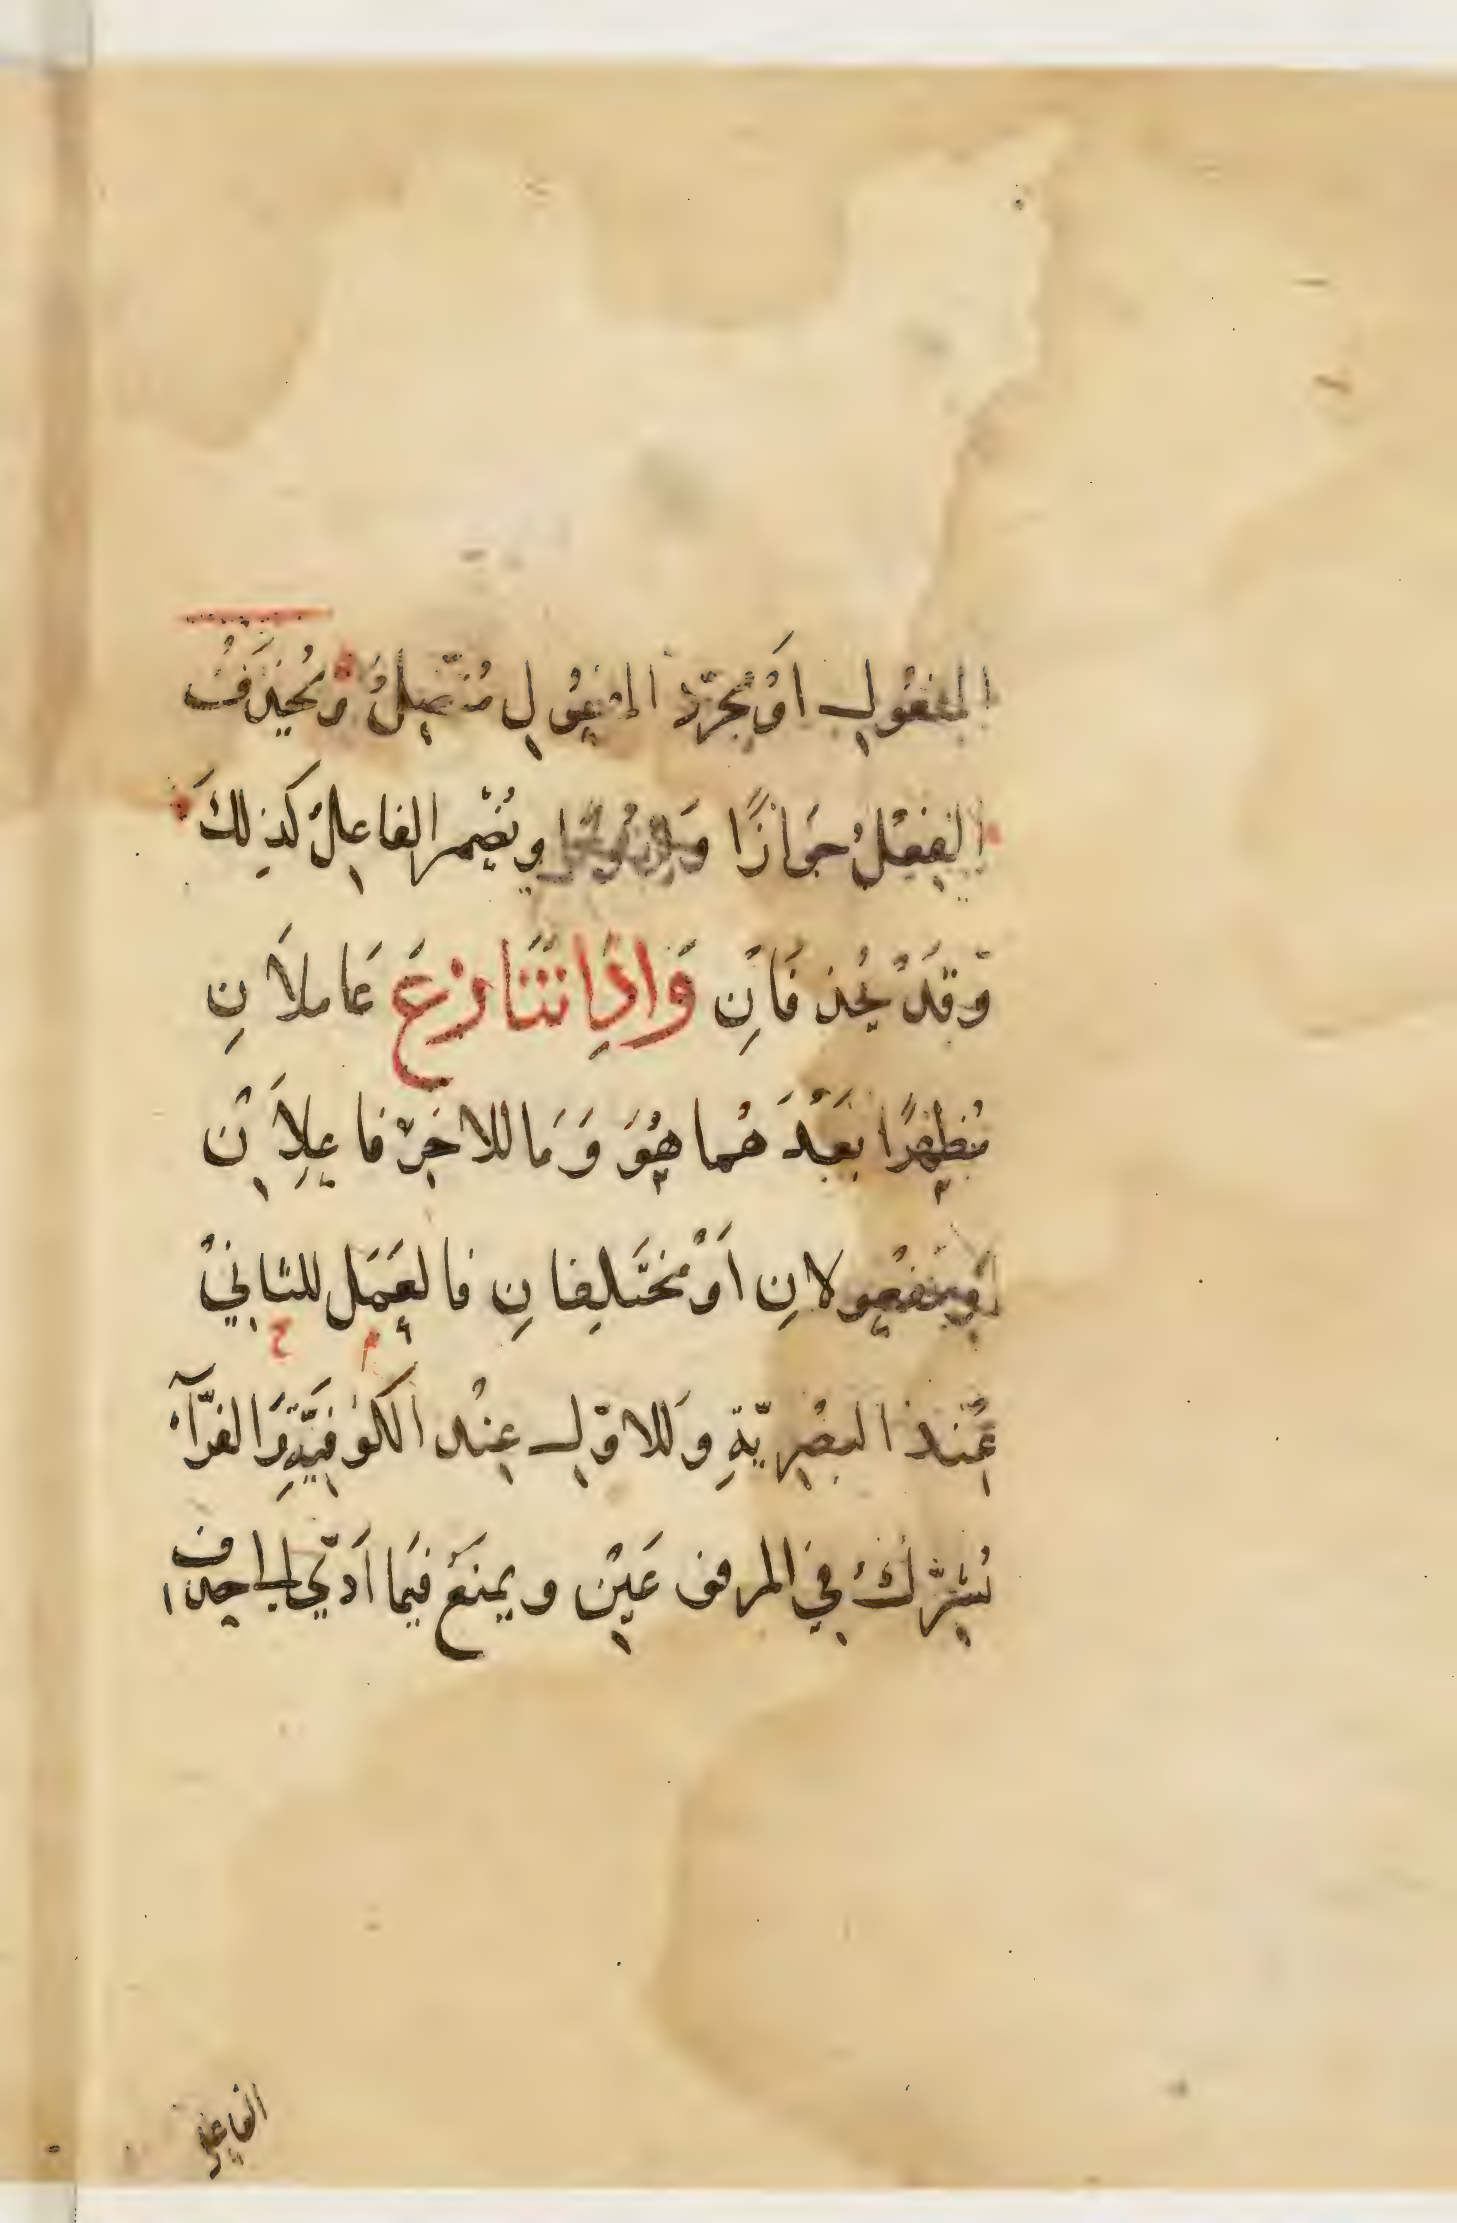 المفعولِ اَوْ مجرّد المفعولِ مُتّصِلٌ وَيُحْذَفُ
الفِعْلُ جَوَازًا ويُضْمر الفاعِلُ كذلِكَ
وَقَدْ يُحذفَانِ وَاِذَا تَنَازَعَ عَاملاَنِ
مُظهَرًا بَعْدَ هُما هُوَ وَمَا للاخَرْ فاعِلاَنِ
اَوْ مَفعُولانِ اَوْ مُختَلِفانِ فالعَمَل للثانيْ
عِنْدَ البَصْرِيّةِ وَللاوّلِ عِنْدَ الكوُفِيَّةِ وَالفَرّآءُ
يُشَرِّكُ فِي المرفوعَيْنِ ويمنَعُ فيَما اَدّي الي حذف
الفاعل